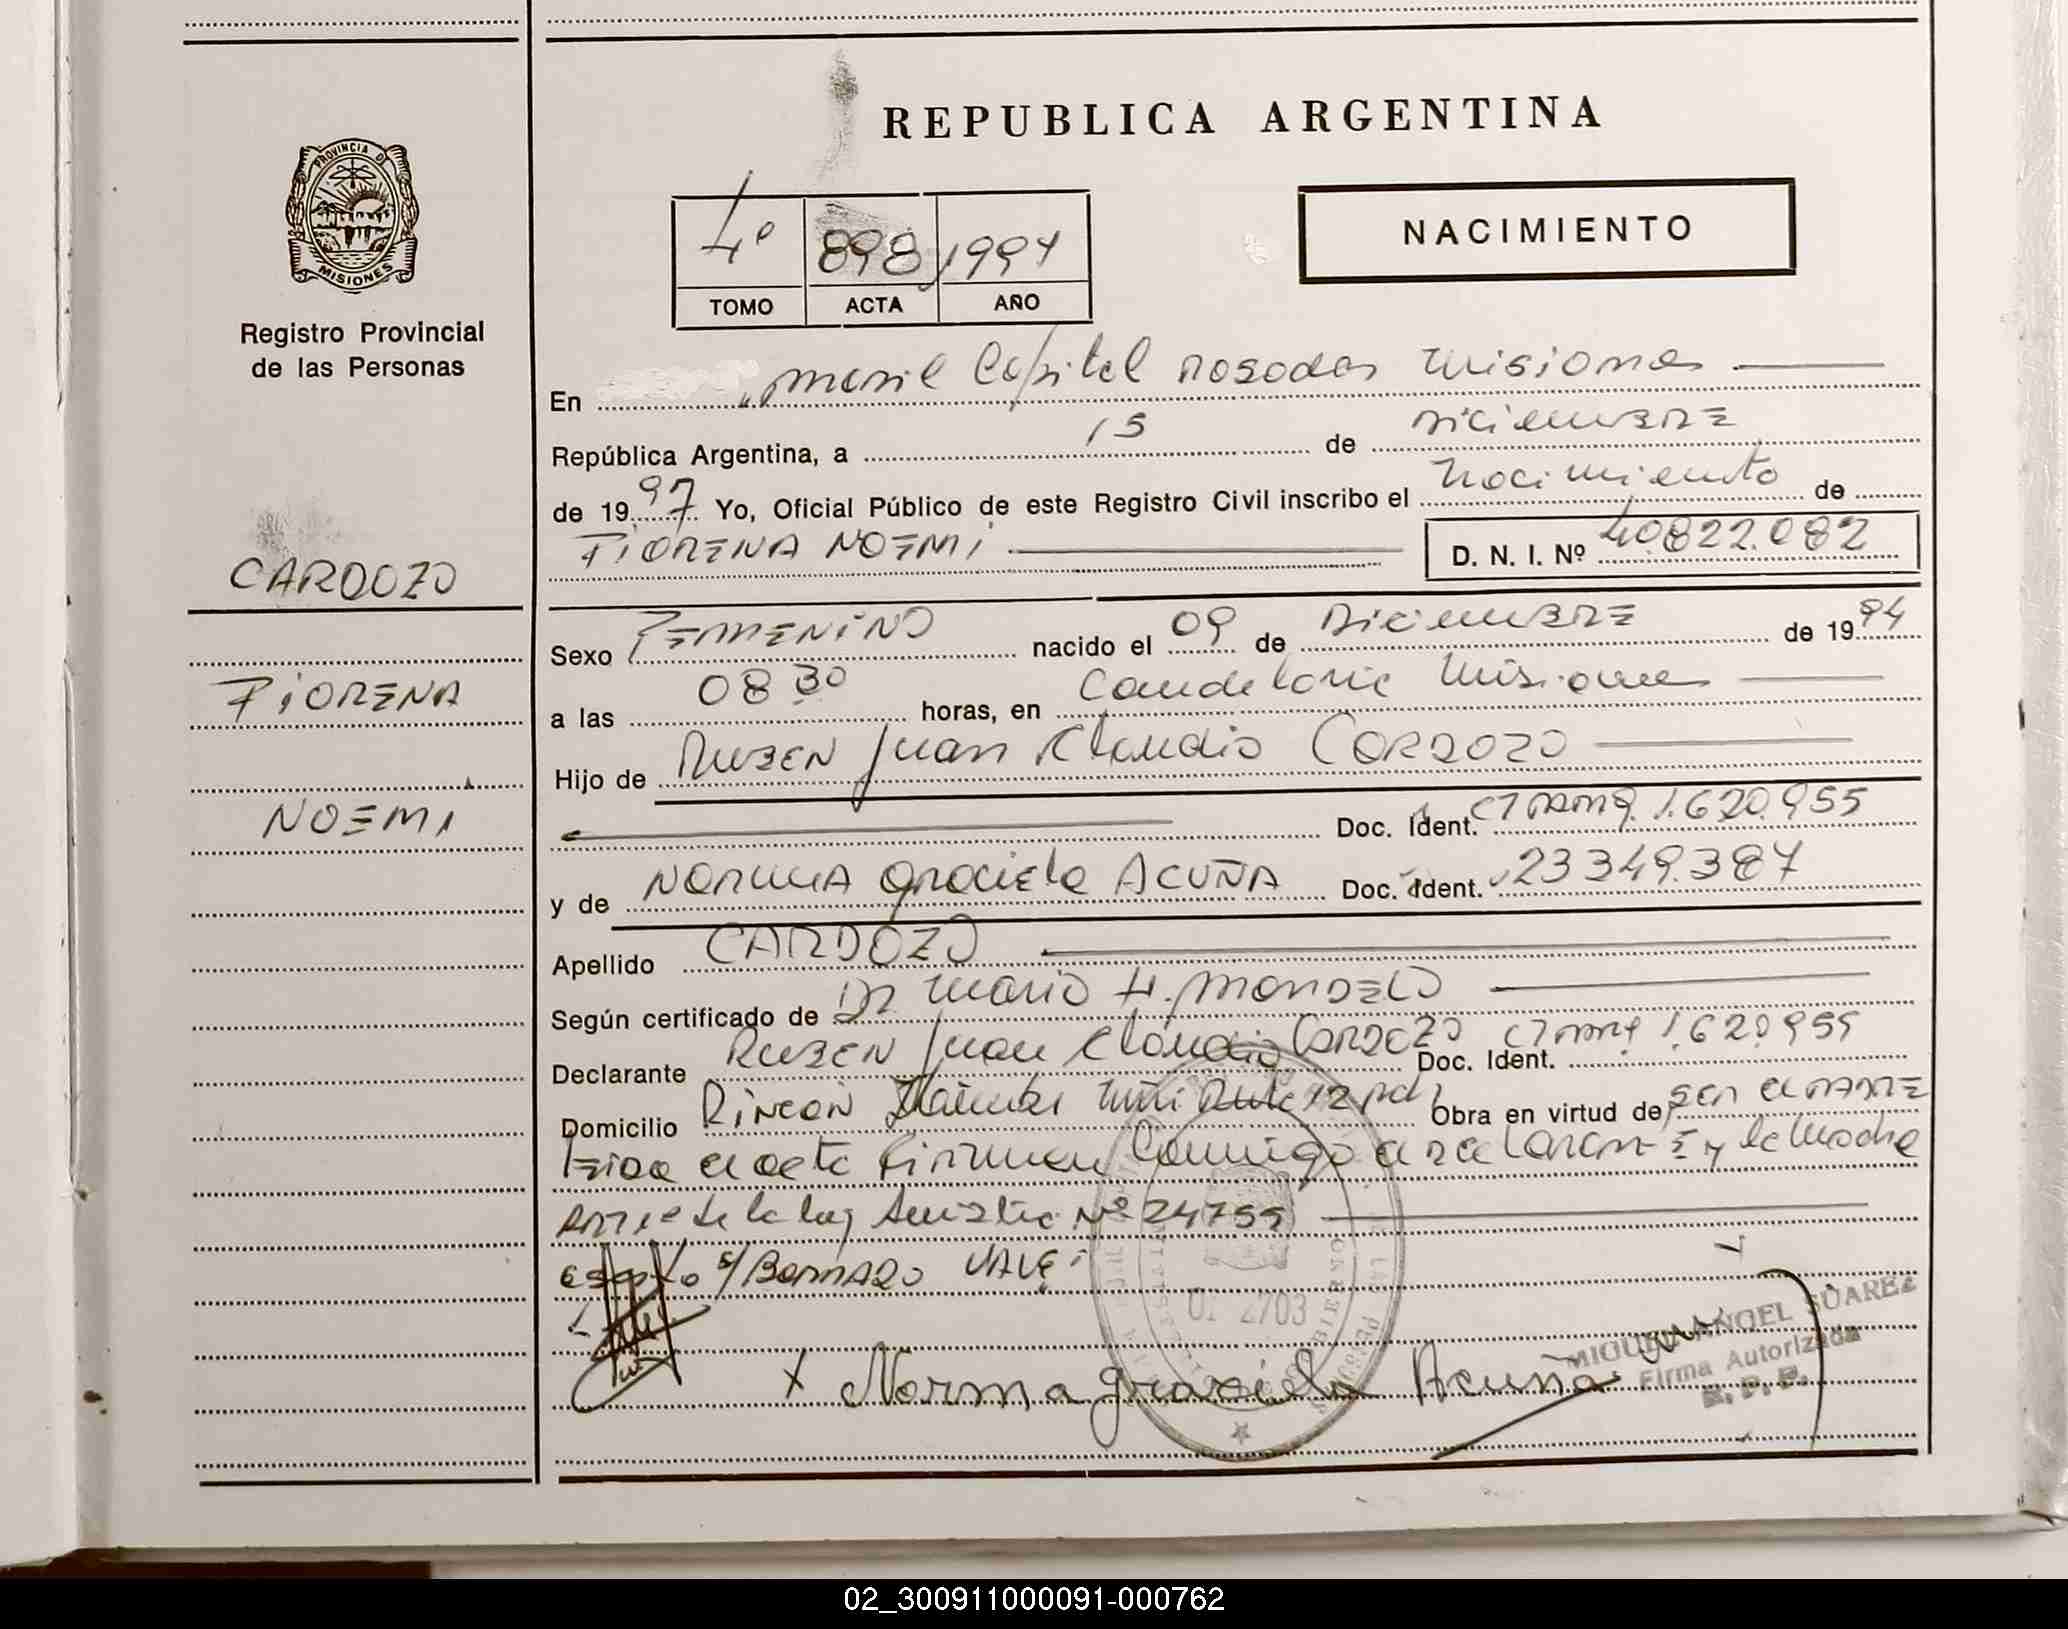 REPUBLICA ARGENTINA
PROVINCIA DE
MISIONES
Registro Provincial
de las Personas
4º 898 1997
TOMO ACTA AÑO
NACIMIENTO
En Capital Posadas Misiones
República Argentina, a 15 de Diciembre
de 1997 Yo, Oficial Público de este Registro Civil inscribo el nacimiento de
FiORENA NOEMi D. N. I. Nº 40822.082
CARDOZO
FiORENA
NOEMi
Sexo FEMENiNO nacido el 09 de Diciembre de 1994
a las 08 30 horas, en Candelaria Misiones
Hijo de RUBEN Juan Claudio CARDOZO
Doc. Ident. 1.620.955
y de NORMA Graciela ACUÑA Doc. Ident. 23349.387
Apellido CARDOZO
Según certificado de Dr Mario H. MONDELO
Declarante RUBEN Juan Claudio CARDOZO Doc. Ident. 1.620.955
Domicilio RiNCON Ruta 12 Obra en virtud de ser el PADRE
acta firman conmigo el declarante y la madre
de la ley Nº 24755
s/BORRADO VALE
x Norma graciela Acuña
MIGUEL ANGEL SUAREZ
Firma Autorizada
R. P. P.
02_300911000091-000762